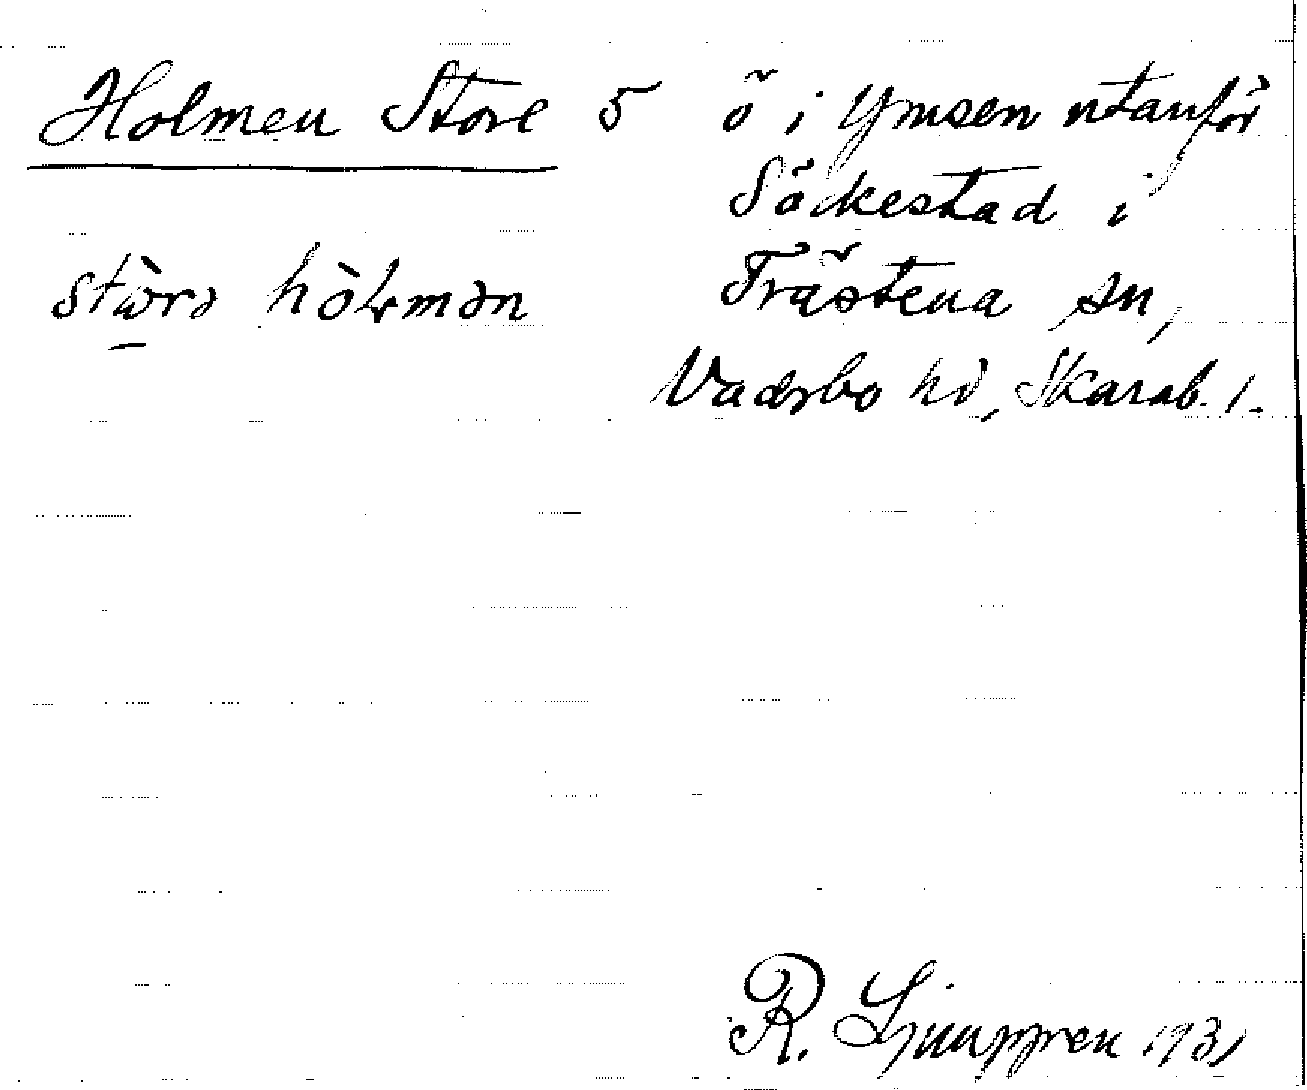 Holmen Store 5 ö i Ymsen utanför
Säckestad i
stòrə hòłmən Trästena sn,
Vadsbo hd, Skarab. l.
R. Ljunggren 1931